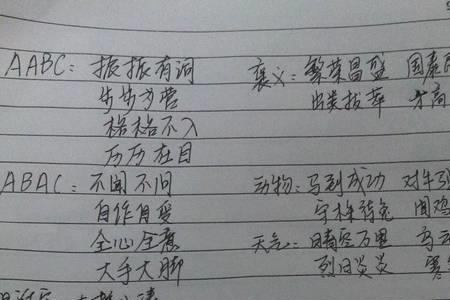 AABC: 振振有词 褒义: 繁荣昌盛 国泰
步步为营 出类拔萃 才高
格格不入
历历在目
ABAC: 不闻不问 动物: 马到成功 对牛弹
自作自受 守株待兔 闻鸡
全心全意 天气: 晴空万里 乌云
大手大脚 烈日炎炎 寒